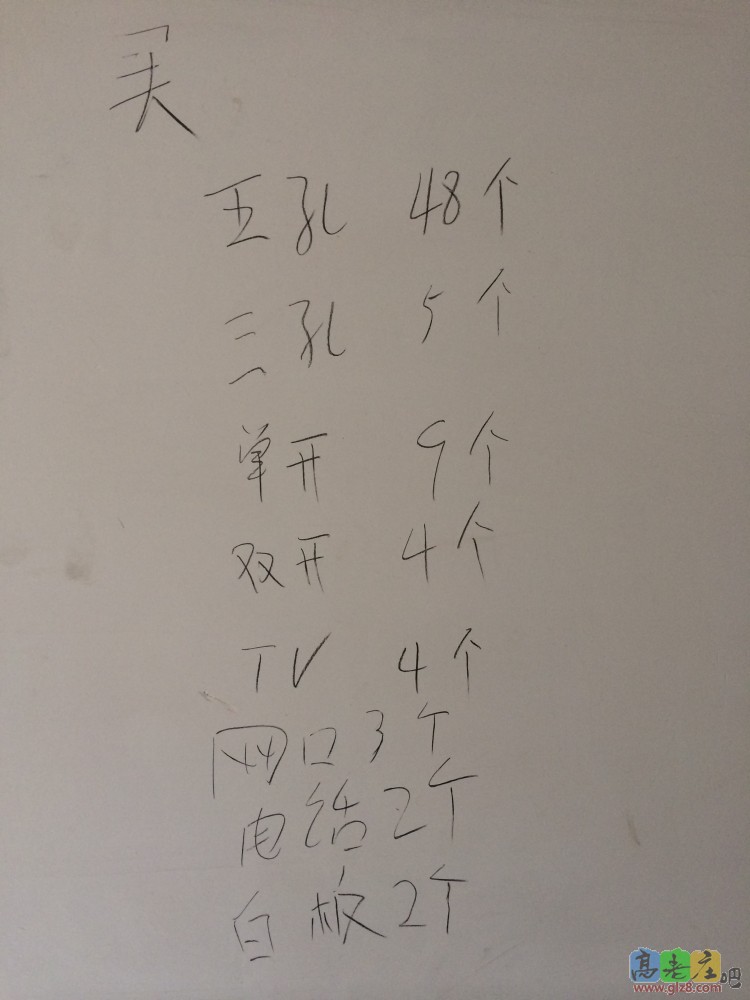 买
五孔 48个
三孔 5个
单开 9个
双开 4个
TV 4个
网口3个
电话2个
白板2个
高老庄吧
www.glz8.com